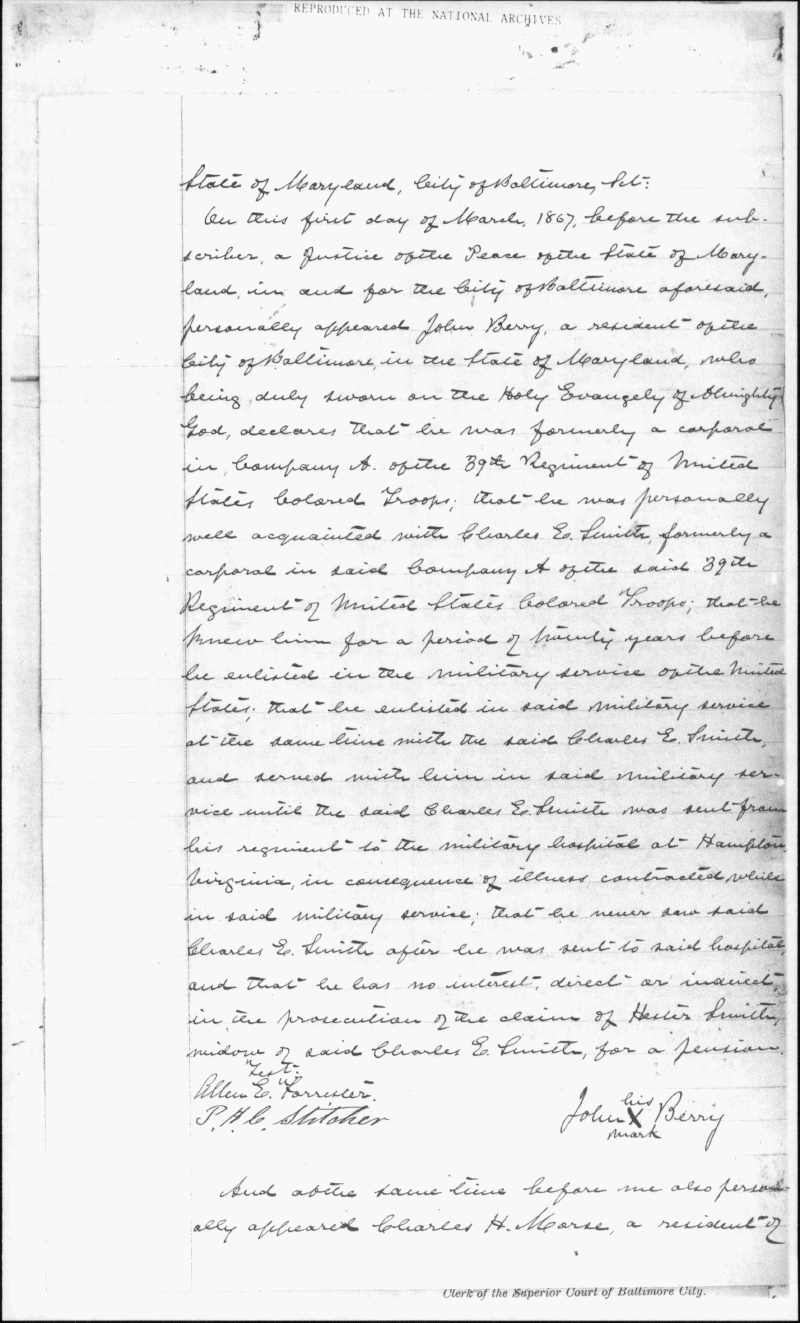 REPRODUCED AT THE NATIONAL ARCHIVES
State of Maryland, City of Baltimore, Sct:
On this first day of March, 1867, before the sub-
scriber, a Justice of the Peace of the State of Mary-
land, in and for the City of Baltimore aforesaid,
personally appeared John Berry, a resident of the
City of Baltimore, in the State of Maryland, who
being duly sworn on the Holy Evangely of Almighty
God, declares that he was formerly a corporal
in Company A. of the 39th Regiment of United
States Colored Troops; that he was personally
well acquainted with Charles E. Smith, formerly a
corporal in said Company A of the said 39th
Regiment of United States Colored Troops; that he
knew him for a period of twenty years before
he enlisted in the military service of the United
States; that he enlisted in said military service
at the same time with the said Charles E. Smith,
and served with him in said military ser-
vice until the said Charles E. Smith was sent from
his regiment to the military hospital at Hampton,
Virginia, in consequence of illness contracted while
in said military service; that he never saw said
Charles E. Smith after he was sent to said hospital,
and that he has no interest, direct or indirect,
in the prosecution of the claim of Hester Smith,
widow of said Charles E. Smith, for a pension.
Test:
Allen E. Forrester.
P. H. C. Stitcher
his
John X Berry
mark
And at the same time before me also person-
ally appeared Charles H. Morse, a resident of
Clerk of the Superior Court of Baltimore City.